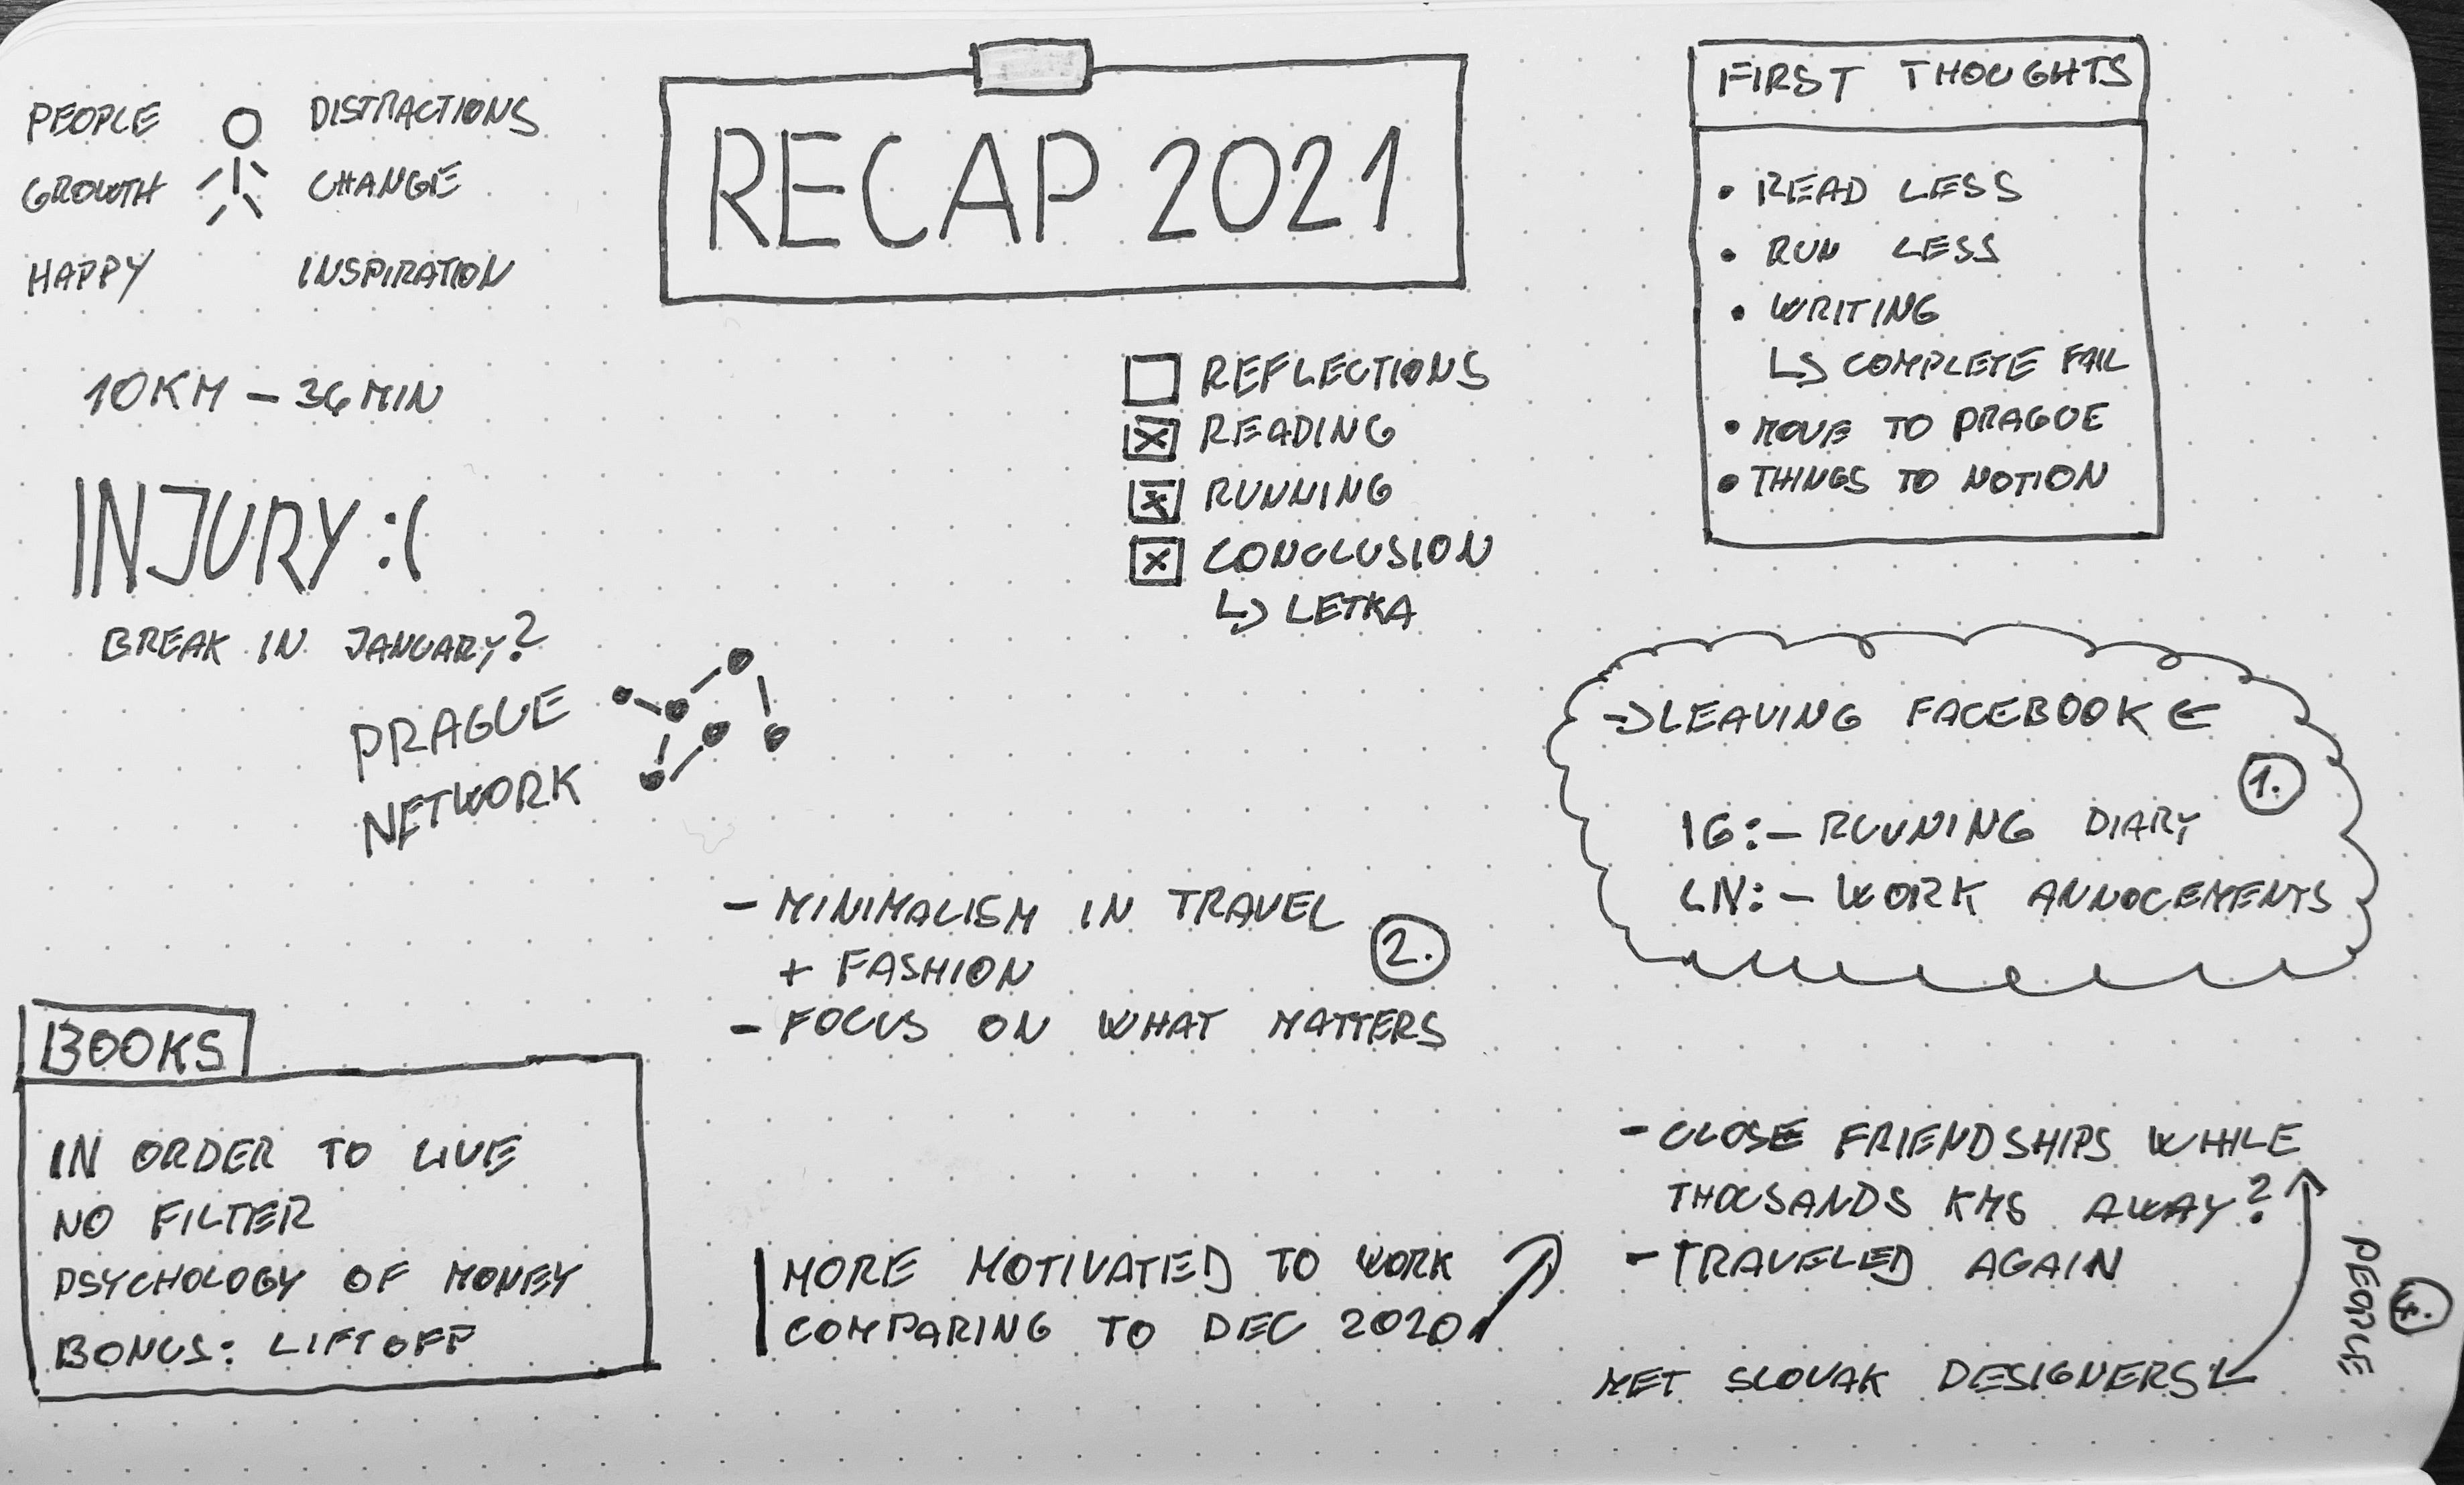 PEOPLE DISTRACTIONS
GROWTH CHANGE
HAPPY INSPIRATION
10KM - 36 MIN
INJURY :(
BREAK IN JANUARY?
PRAGUE
NETWORK
RECAP 2021
REFLECTIONS
READING
RUNNING
CONCLUSION
↳ LETKA
FIRST THOUGHTS
• READ LESS
• RUN LESS
• WRITING
↳ COMPLETE FAIL
• MOVE TO PRAGUE
• THINGS TO NOTION
→ LEAVING FACEBOOK ←
1.
IG: - RUNNING DIARY
LN: - WORK ANNOCEMENTS
- MINIMALISM IN TRAVEL
+ FASHION
2.
- FOCUS ON WHAT MATTERS
BOOKS
IN ORDER TO LIVE
NO FILTER
PSYCHOLOGY OF MONEY
BONUS: LIFTOFF
MORE MOTIVATED TO WORK
COMPARING TO DEC 2020
- CLOSE FRIENDSHIPS WHILE
THOUSANDS KMS AWAY?
- TRAVELED AGAIN
MET SLOVAK DESIGNERS
PEOPLE